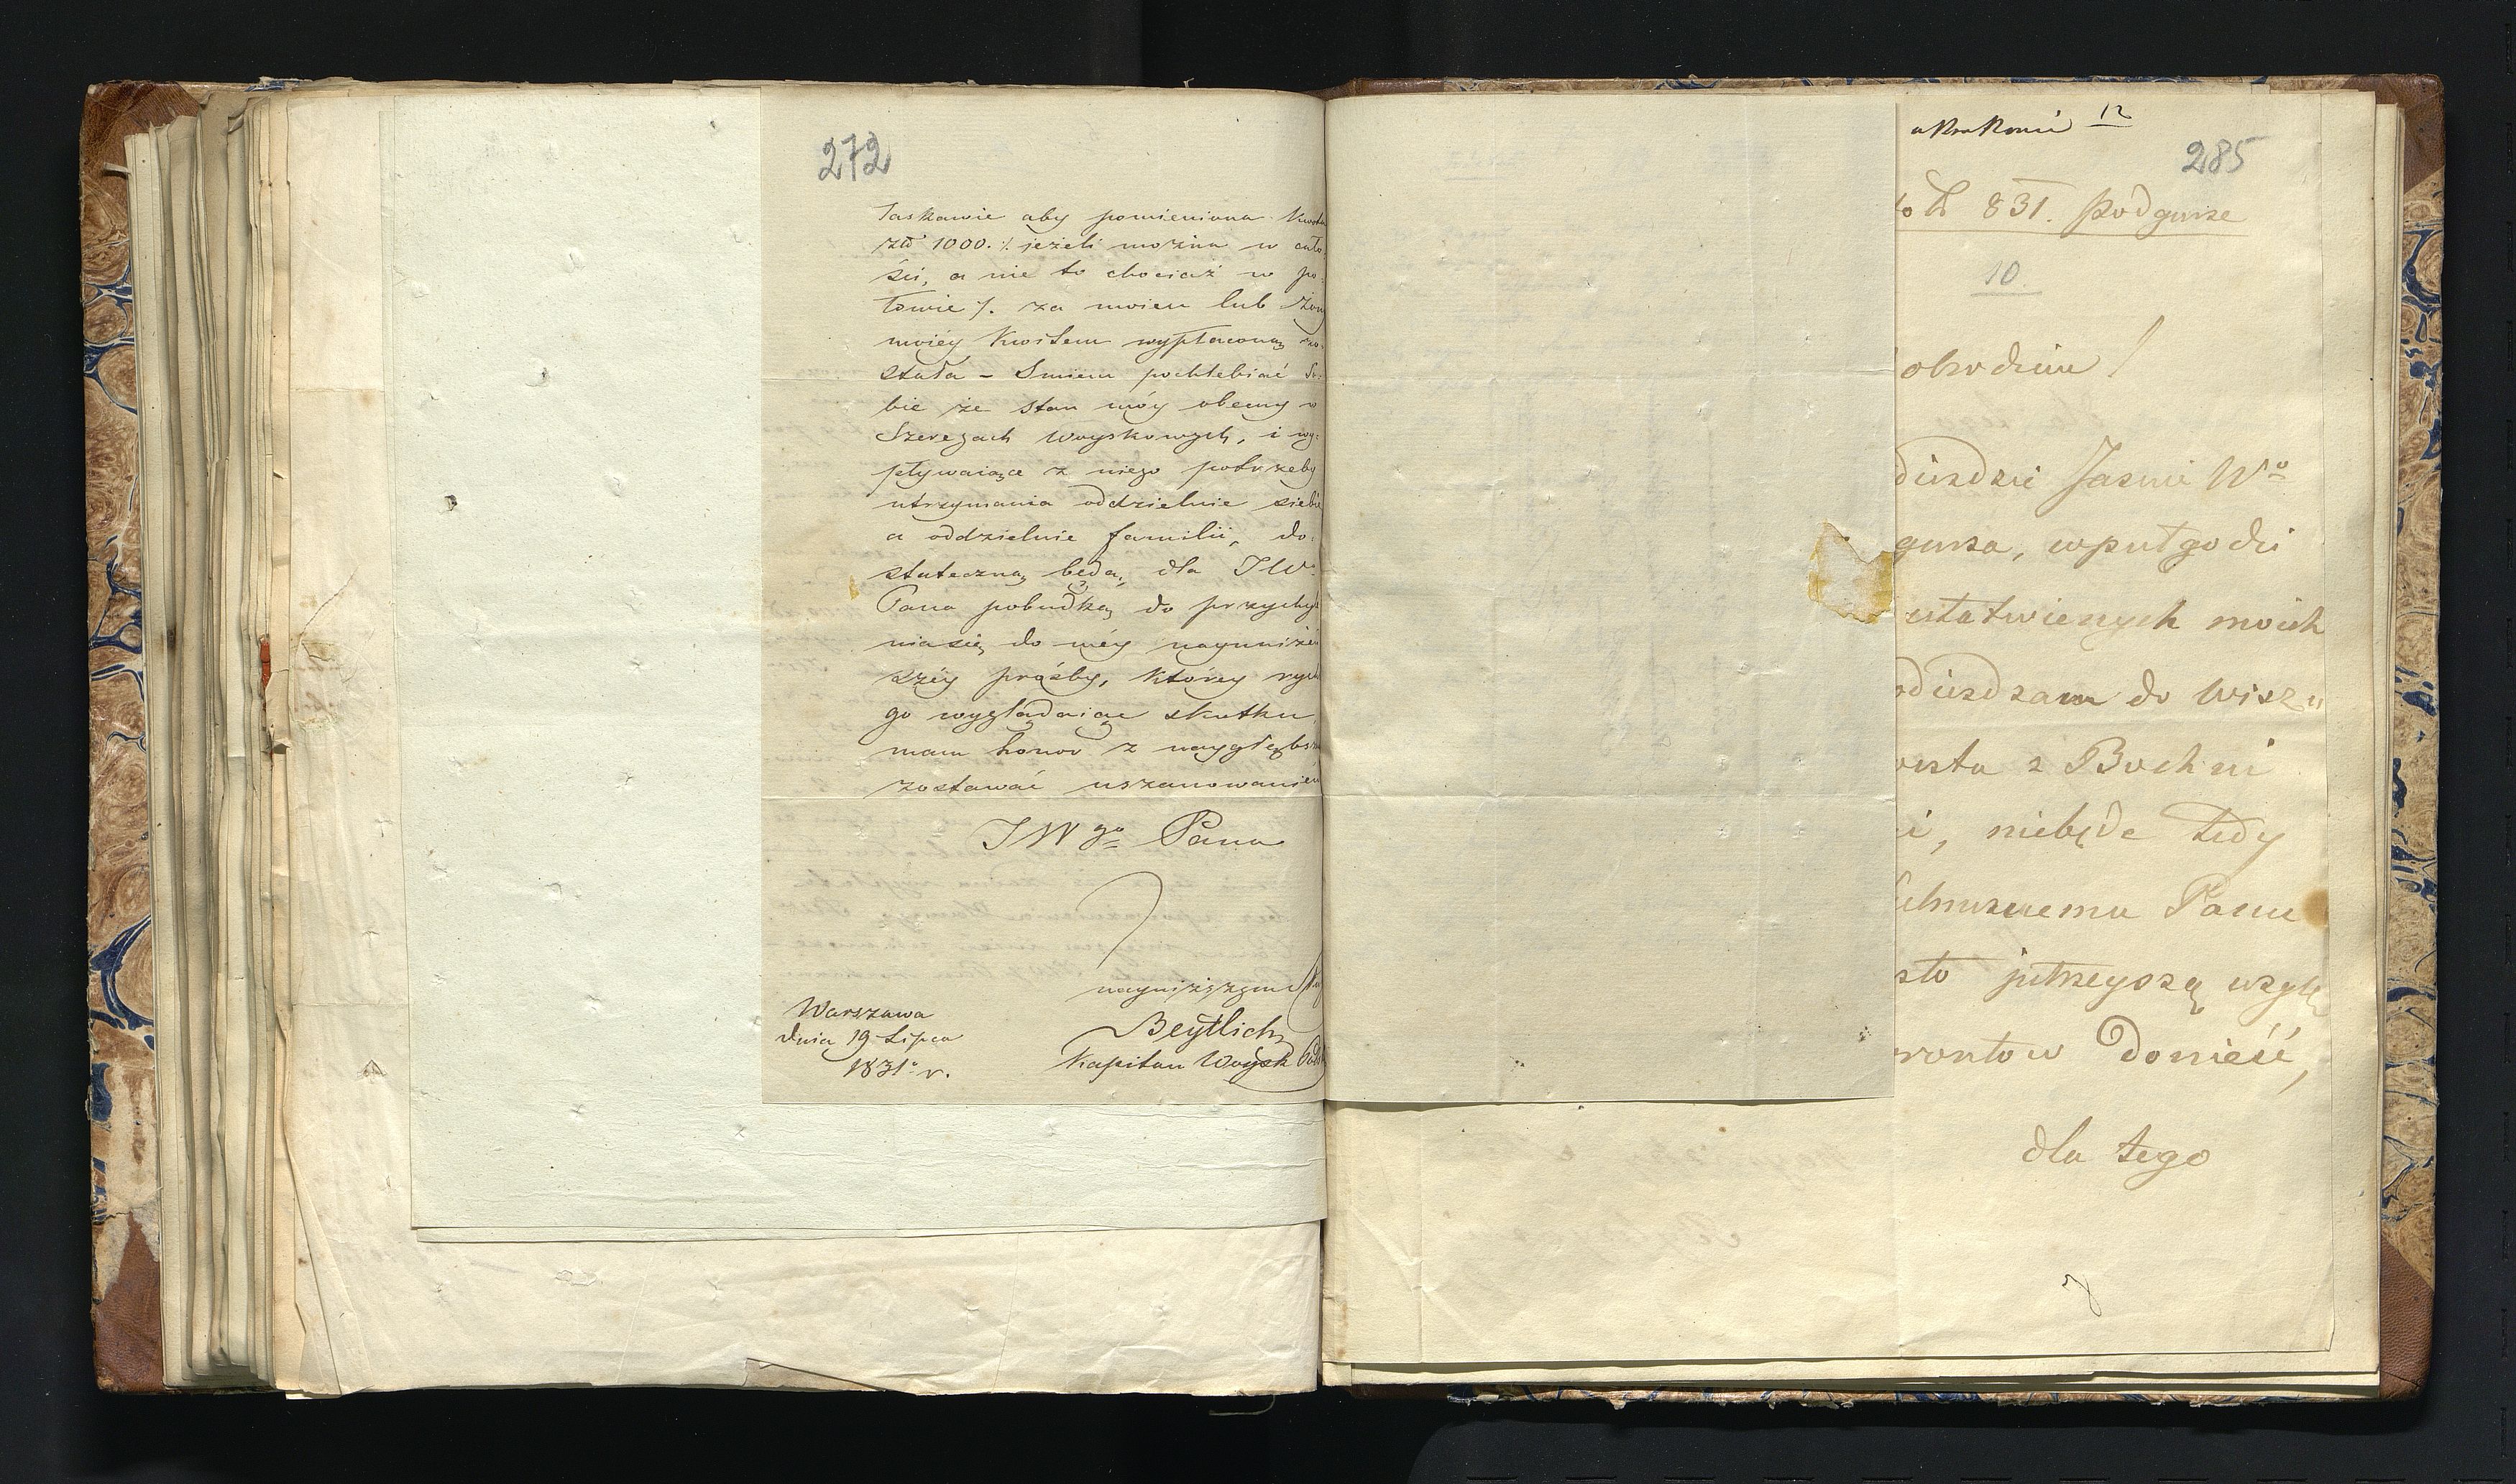 272
łaskawie aby pomieniona kwota
złł 1000. /. jeżeli można w cało-
ści, a nie to chociaż w po-
łowie /. za moiem lub żony
moiéy kwitem wypłaconą zo-
stała – Smiem pochlebiać so-
bie że stan móy obecny w
Szeregach woyskowych, i wy-
pływaiące z niego potrzeby
utrzymania oddzielnie siebie
a oddzielnie familii, do-
stateczną będą, dla JWo
Pana pobudką do przychyl
niasię do méy nayuniżeń
széy prośby, któréy rych
go wyglądaiąc skutku,
mam honor z naygłębsz
zostawać uszanowaniem
JWgo Pana
nayniższym
Beytlich
Kapitan Woysk
Warszawa
dnia 19 Lipca
1831o r.
12
285
831. Podgurze
10.
obrodzieiu!
dieżdzie Jasnie Wo
gurza, wpułgodzi
ułatwienych moich
dieżdzam do Wisz
z Bochni
i, niebęde tedy
Panu
sto jutrzeyszą wzglę
rontow donieść,
dla tego